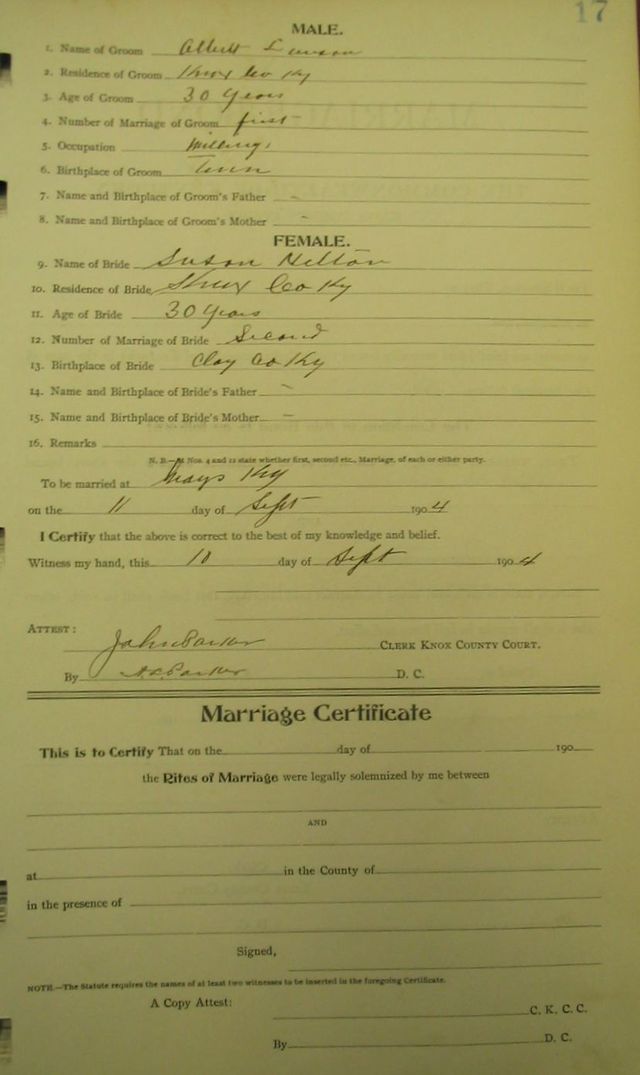 17
MALE.
1. Name of Groom Albert
2. Residence of Groom Knox Co Ky
3. Age of Groom 30 years
4. Number of Marriage of Groom first
5. Occupation
6. Birthplace of Groom Tenn
7. Name and Birthplace of Groom's Father –
8. Name and Birthplace of Groom's Mother –
FEMALE.
9. Name of Bride Susan
10. Residence of Bride Knox Co Ky
11. Age of Bride 30 years
12. Number of Marriage of Bride Second
13. Birthplace of Bride Clay Co Ky
14. Name and Birthplace of Bride's Father –
15. Name and Birthplace of Bride's Mother –
16. Remarks
N. B.—At Nos. 4 and 12 state whether first, second etc., Marriage, of each or either party.
To be married at Mays Ky
on the 11 day of Sept 1904
I Certify that the above is correct to the best of my knowledge and belief.
Witness my hand, this 10 day of Sept 1904
ATTEST:
John Parker CLERK KNOX COUNTY COURT.
By Parker D. C.
Marriage Certificate
This is to Certify That on the day of 190
the Rites of Marriage were legally solemnized by me between
AND
at in the County of
in the presence of
Signed,
NOTE.—The Statute requires the names of at least two witnesses to be inserted in the foregoing Certificate.
A Copy Attest:
C. K. C. C.
By D. C.